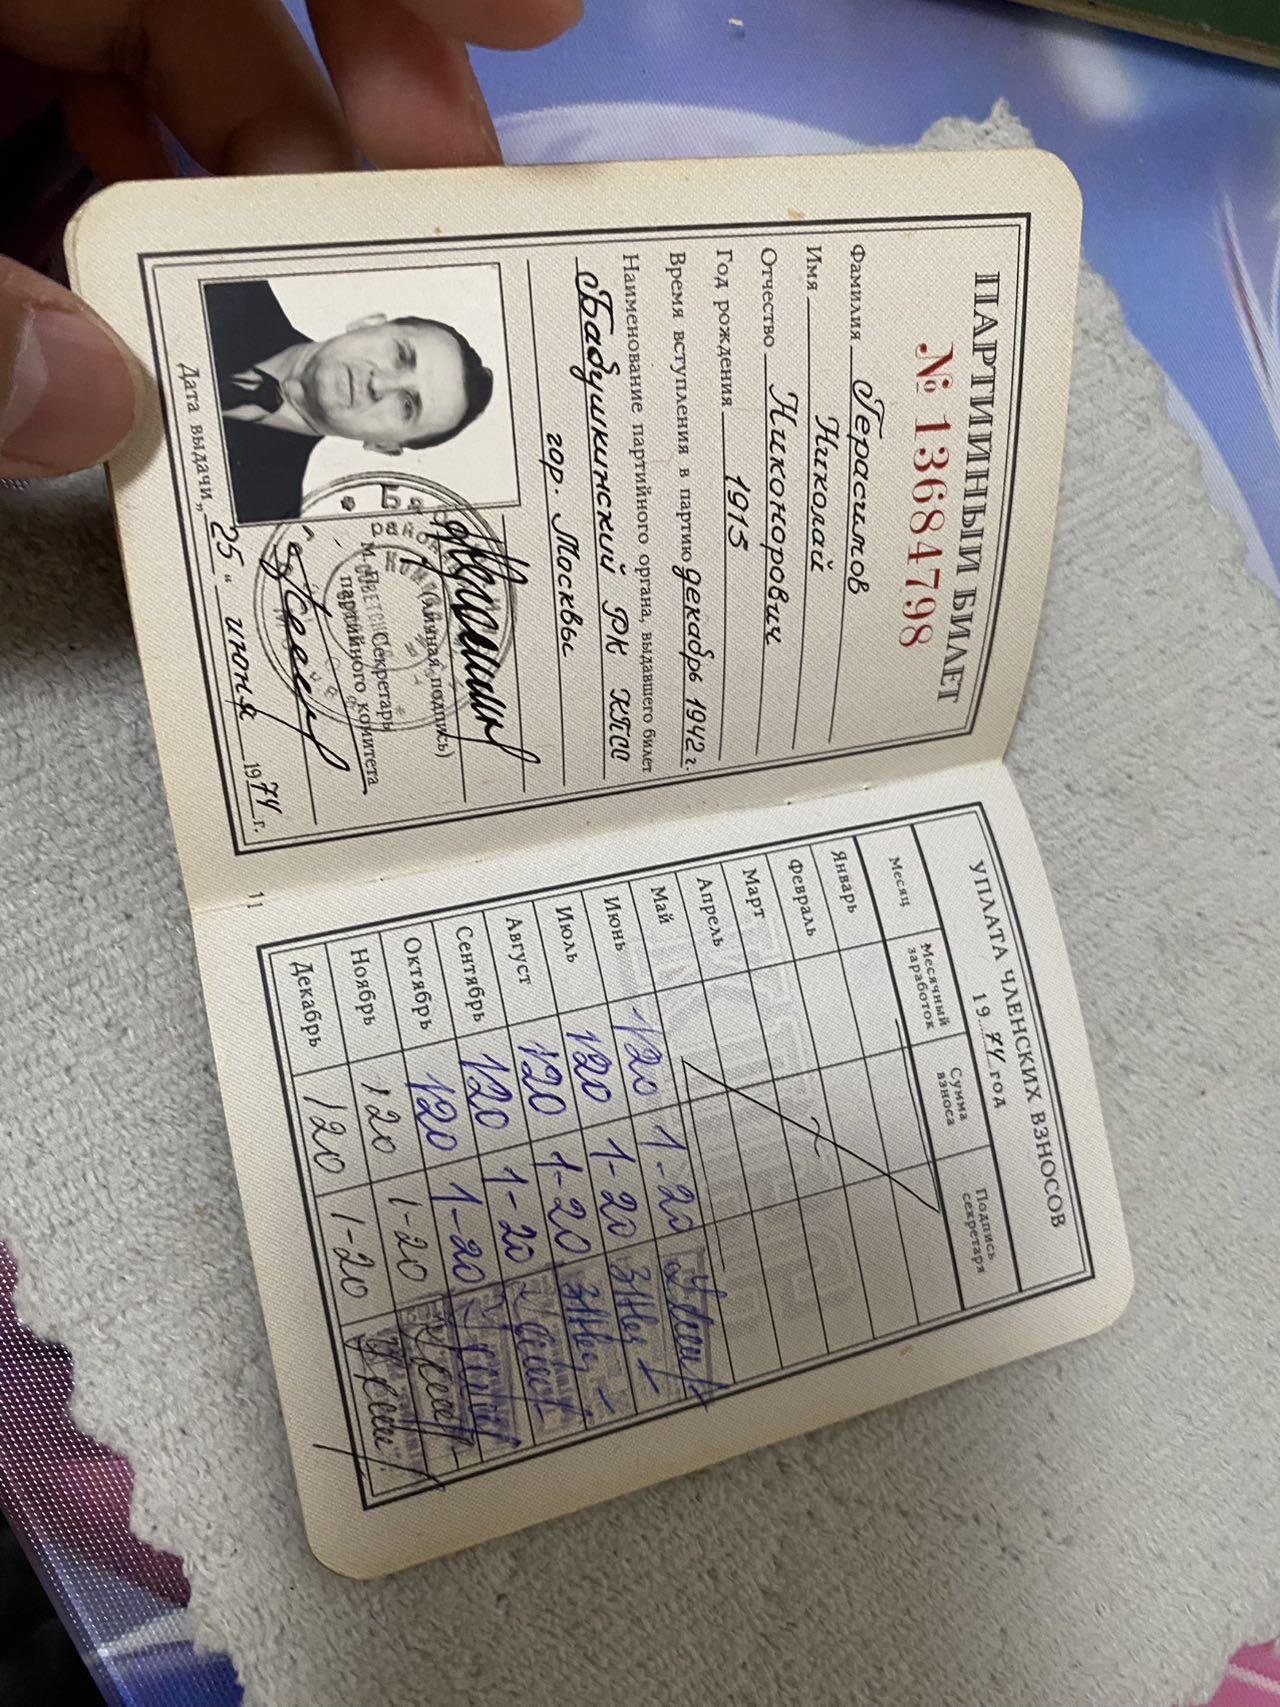 ПАРТИЙНЫЙ БИЛЕТ
№ 13684798
Фамилия Герасимов
Имя Николай
Отчество Никонорович
Год рождения 1915
Время вступления в партию декабрь 1942 г.
Наименование партийного органа, выдавшего билет
Бабушкинский РК КПСС
гор. Москвы
(личная подпись)
М. П.
Секретарь
партийного комитета
Дата выдачи „25“ июня 1974 г.
11
УПЛАТА ЧЛЕНСКИХ ВЗНОСОВ
1974 год
Месяц Месячный заработок Сумма взноса Подпись секретаря
Январь
Февраль
Март
Апрель
Май 120 1-20
Июнь 120 1-20
Июль 120 1-20
Август 120 1-20
Сентябрь 120 1-20
Октябрь 120 1-20
Ноябрь 120 1-20
Декабрь